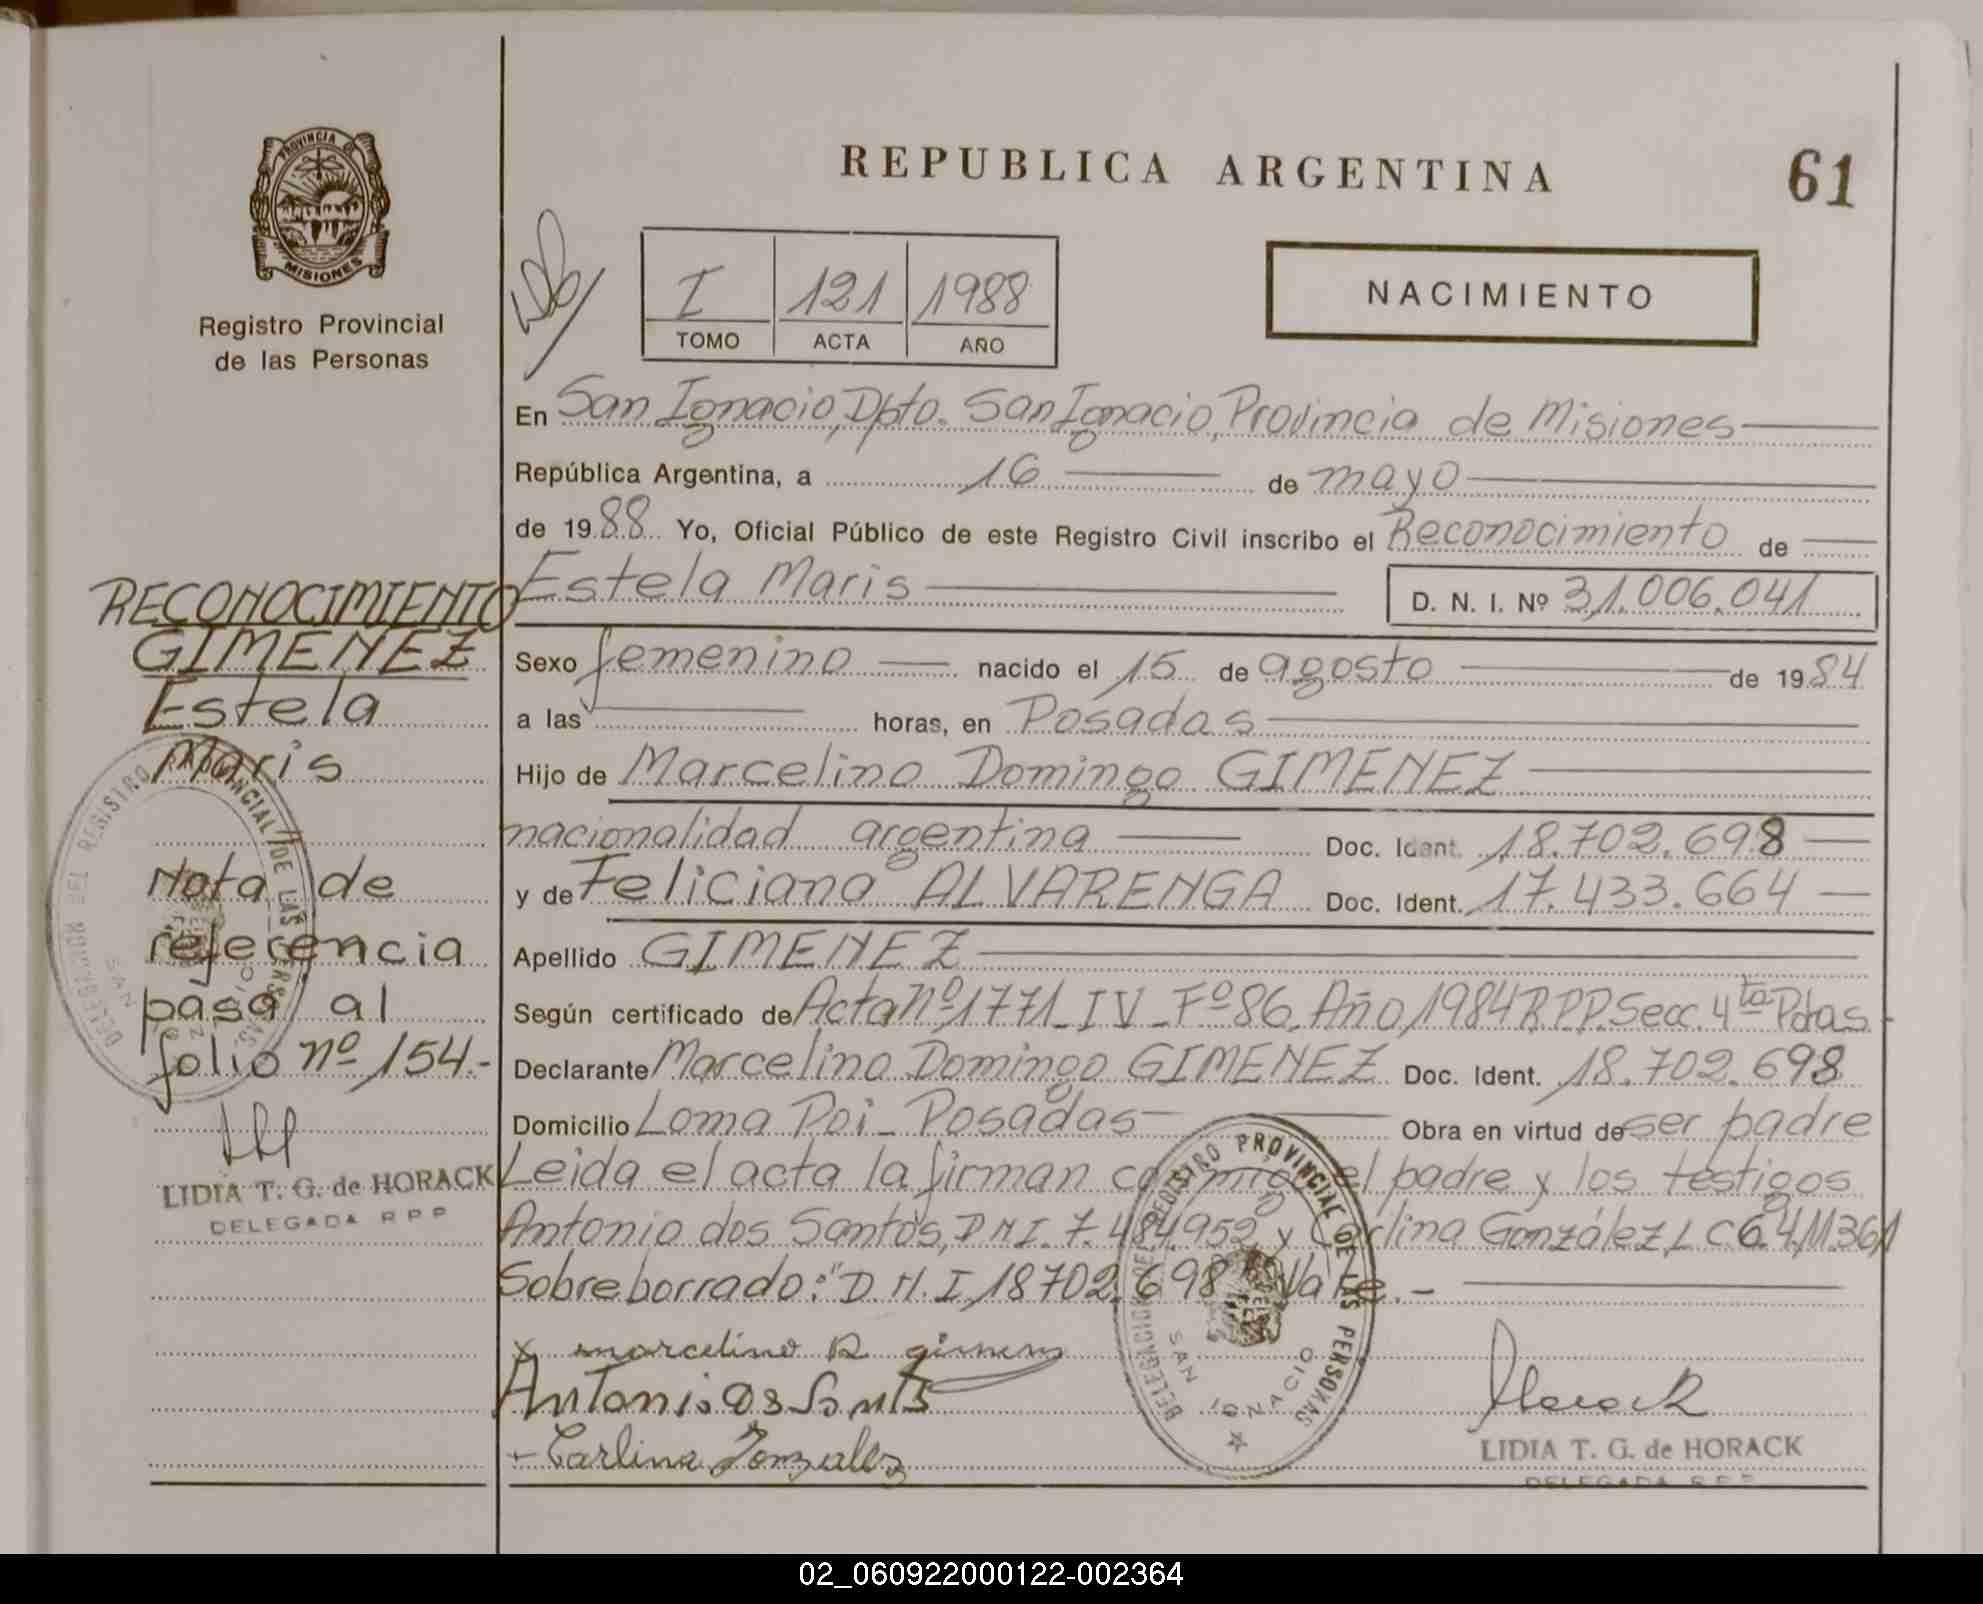 REPUBLICA ARGENTINA
61
PROVINCIA DE
MISIONES
Registro Provincial
de las Personas
I 121 1988
TOMO ACTA AÑO
NACIMIENTO
En San Ignacio, Dpto. San Ignacio, Provincia de Misiones
República Argentina, a 16 de mayo
de 1988 Yo, Oficial Público de este Registro Civil inscribo el Reconocimiento de
Estela Maris D. N. I. Nº 31.006.041
Sexo femenino nacido el 15 de agosto de 1984
a las horas, en Posadas
Hijo de Marcelino Domingo GIMENEZ
nacionalidad argentina Doc. Ident. 18.702.698
y de Feliciana ALVARENGA Doc. Ident. 17.433.664
Apellido GIMENEZ
Según certificado de Acta nº 1771_IV_Fº86, Año 1984 R.P.P. Secc. 4ta Pdas.
Declarante Marcelino Domingo GIMENEZ Doc. Ident. 18.702.698
Domicilio Loma Poi_ Posadas Obra en virtud de ser padre
Leida el acta la firman conmigo el padre y los testigos
Antonio dos Santos, D.N.I. 7.484.952 y Carlina González, L C 6.411.361
Sobreborrado: "D.N.I. 18702.698" Vale.-
x marcelino D gimenez
Antonio Dos Santos
Carlina Gonzalez
LIDIA T. G. de HORACK
DELEGADA R P P
RECONOCIMIENTO
GIMENEZ
Estela
Maris
Nota de
referencia
pasa al
folio nº 154.-
LIDIA T. G. de HORACK
DELEGADA R P P
DELEGACION DEL REGISTRO PROVINCIAL DE LAS PERSONAS
SAN IGNACIO
DELEGACION DEL REGISTRO PROVINCIAL DE LAS PERSONAS
SAN IGNACIO
02_060922000122-002364